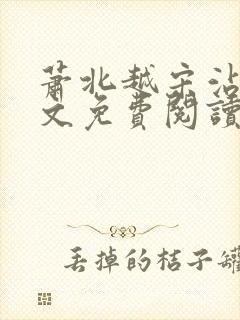 蕭北越宋沾
文免費閱讀
丟掉的桔子罐